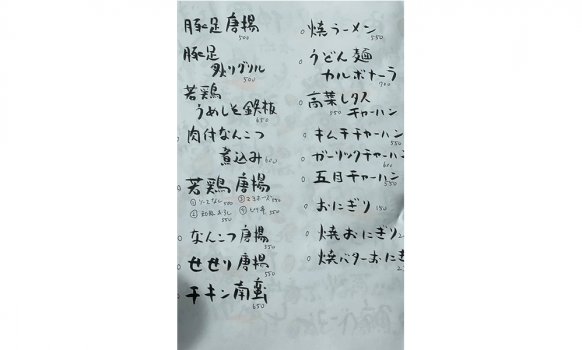 豚足唐揚
500
豚足
炙りグリル
500
若鶏
うめしそ鉄板
650
肉付なんこつ
煮込み 600
若鶏唐揚
① ソースなし 500 ③ マヨネーズ 550
② 和風おろし 550 ④ ピリ辛 550
なんこつ唐揚
550
せせり唐揚
550
チキン南蛮
650
焼ラーメン
550
うどん麺
カルボナーラ
700
高菜レタス
チャーハン
550
キムチチャーハン
550
ガーリックチャーハン
600
五目チャーハン
550
おにぎり 150
焼おにぎり
焼バターおにぎ